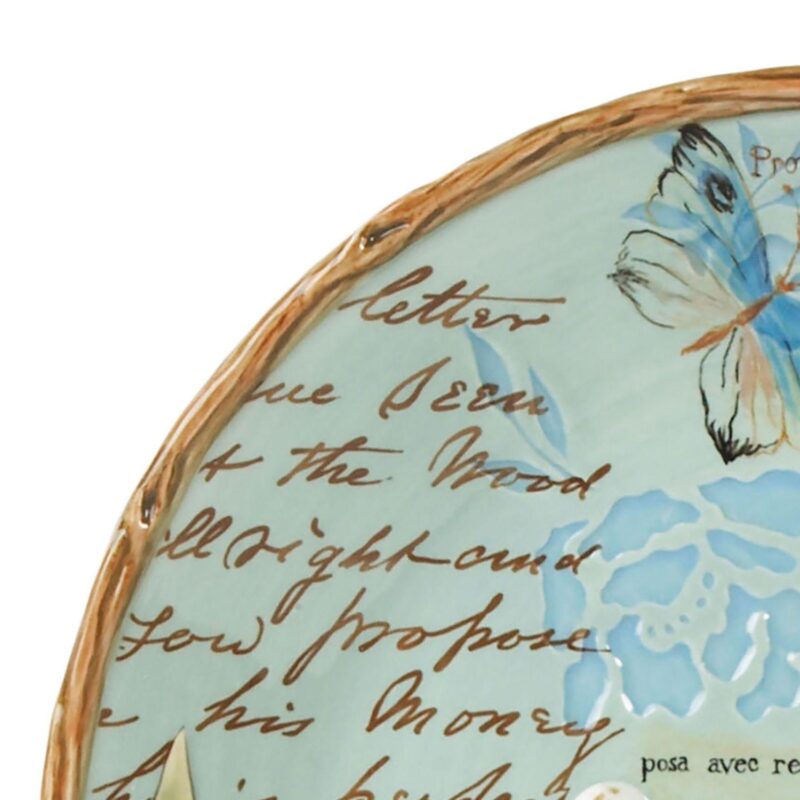 Pro
letter
ue Seen
t the Wood
ill right and
You propose
his Money
his
posa avec re